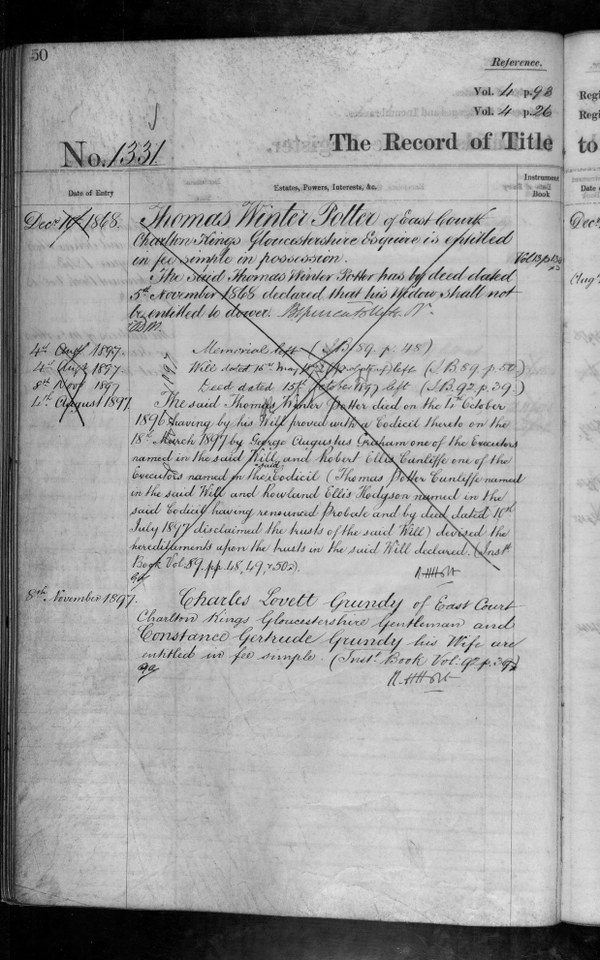 50
Reference.
Vol. 4 p. 98
Vol. 4 p. 26
No. 1331
The Record of Title
to
Regi
Regi
Date of Entry
Estates, Powers, Interests, &c.
Instrument Book
Date
Decr 10th 1868.
Thomas Winter Potter of East Court
Charlton Kings Gloucestershire Esquire is entitled
in fee simple in possession.
Vol 13 p 130
The said Thomas Winter Potter has by deed dated
5th November 1868 declared that his Widow shall not
be entitled to dower.
4th Augt 1897.
Memorial left (I.B 89. p. 48)
4th Augt 1897
Will dated 16th May left (I.B 89. p. 50)
8th Novr 1897
Deed dated 15th October 1897 left (I.B. 92. p. 39.)
4th August 1897
The said Thomas Winter Potter died on the 4th October
1896 having by his Will proved with a Codicil thereto on the
18th March 1897 by George Augustus Graham one of the Executors
named in the said Will and Robert Ellis Cunliffe one of the
Executors named in the said Codicil (Thomas Potter Cunliffe named
in the said Will and Rowland Ellis Hodgson named in the
said Codicil having renounced Probate and by deed dated 10th
July 1897 disclaimed the trusts of the said Will) devised the
hereditaments upon the trusts in the said Will declared. (Inst.
Book Vol. 89. pp. 48, 49, & 50).
8th November 1897.
Charles Lovett Grundy of East Court
Charlton Kings Gloucestershire Gentleman and
Constance Gertrude Grundy his Wife are
entitled in fee simple. (Inst. Book Vol. 92 p. 39)